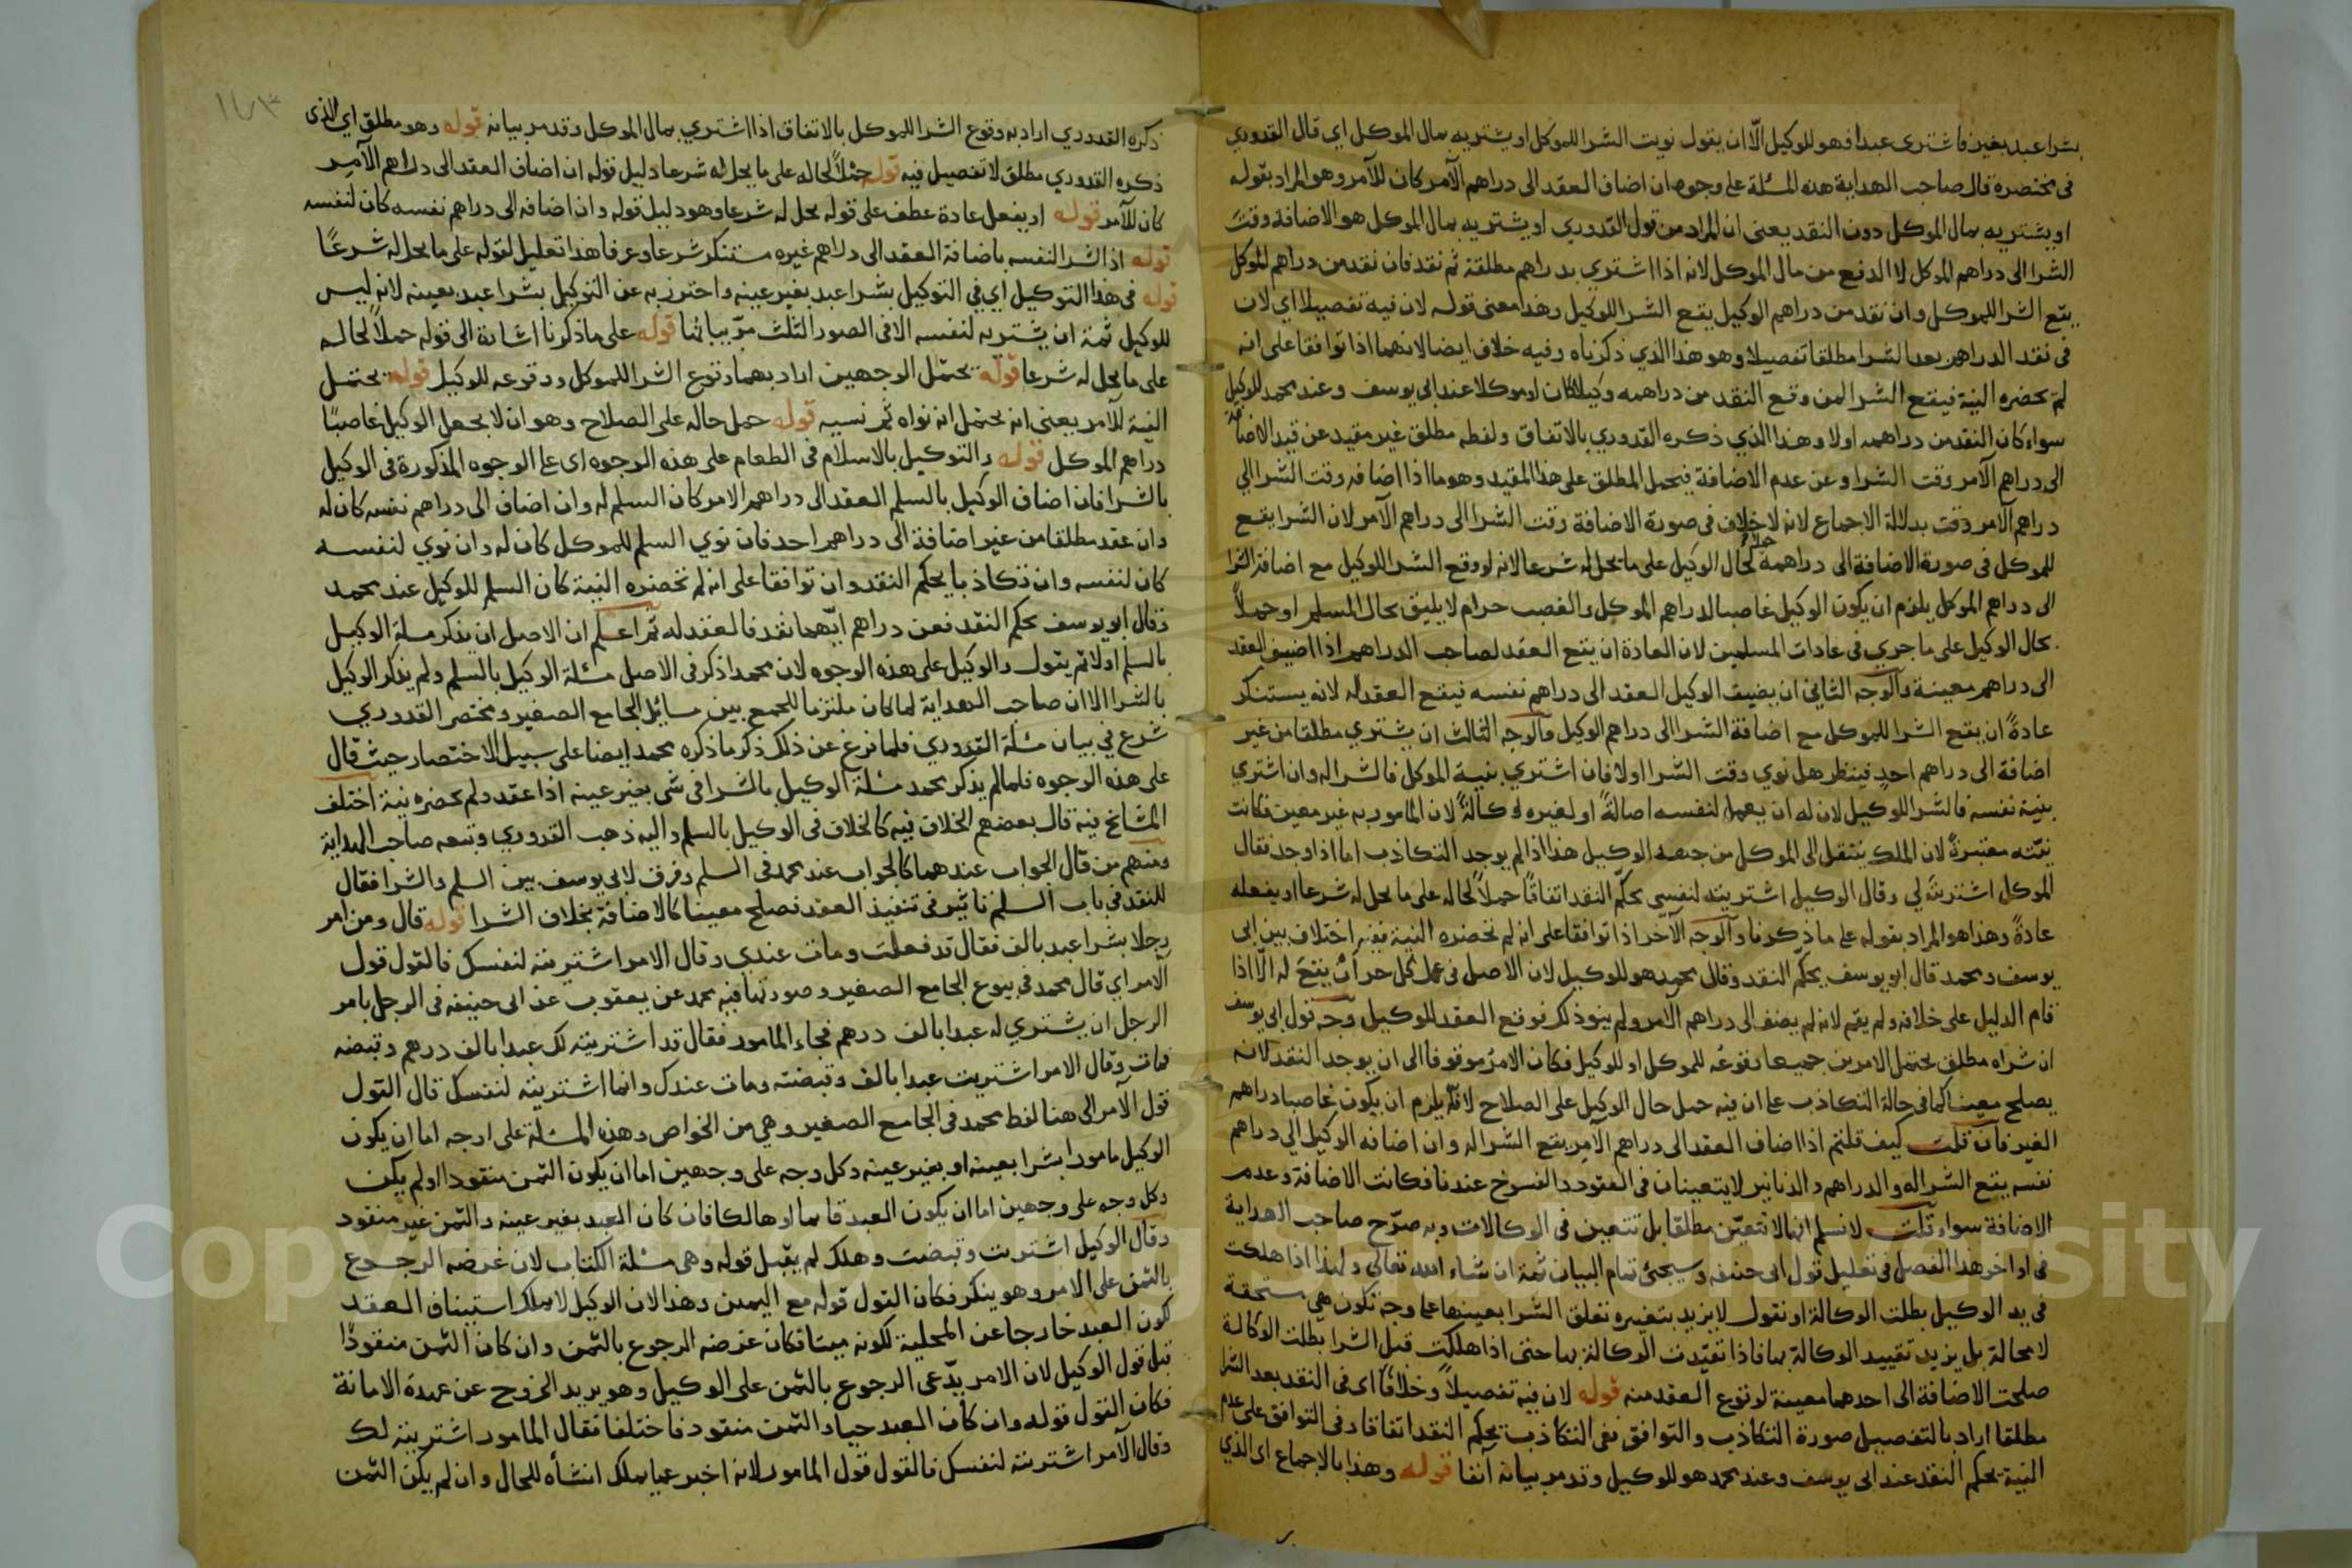 بشرا عبد بغير عينه فاشترى عبدا فهو للوكيل الّا ان يقول نويت الشرا للموكل او يشتريه بمال الموكل اي قال القدوري
في مختصره قال صاحب الهداية هذه المسئلة على وجوه ان اضاف العقد الى دراهم الآمر كان للآمر وهو المراد بقوله
او يشتريه بمال الموكل دون النقد يعني ان المراد من قول القدوري او يشتريه بمال الموكل هو الاضافة وقت
الشرا الى دراهم الموكل لا الدفع من مال الموكل لانه اذا اشتري بدراهم مطلقة ثم نقد فان نقد من دراهم الموكل
يقع الشرا للموكل وان نقد من دراهم الوكيل يقع الشرا للوكيل وهذا معنى قوله لان فيه تفصيلا اي لان
في نقد الدراهم بعد الشرا مطلقا تفصيلا وهو هذا الذي ذكرناه وفيه خلاف ايضا لانهما اذا توافقا على انه
لم تحضره النية فيقع الشرا لمن وقع النقد من دراهمه وكيلا كان او موكلا عند ابي يوسف وعند محمد للوكيل
سواء كان النقد من دراهمه اولا وهذا الذي ذكره القدوري بالاتفاق ولفظه مطلق غير مقيد عن قيد الاضافة
الى دراهم الآمر وقت الشرا وعن عدم الاضافة فيحمل المطلق على هذا المقيد وهو ما اذا اضافه وقت الشرا الي
دراهم الآمر وقت بدلالة الاجماع لانه لا خلاف في صورة الاضافة وقت الشرا الى دراهم الآمر لان الشرا يقع
للموكل في صورة الاضافة الى دراهمه حملا لحال الوكيل على ما يحل له شرعا لانه لو وقع الشرا للوكيل مع اضافة الشرا
الى دراهم الموكل يلزم ان يكون الوكيل غاصبا لدراهم الموكل والغصب حرام لا يليق بحال المسلم او حملاً
بحال الوكيل على ما جري في عادات المسلمين لان العادة ان يقع العقد لصاحب الدراهم اذا اضيف العقد
الى دراهم معينة والوجه الثاني ان يضيف الوكيل العقد الى دراهم نفسه فيقع العقد له لانه يستنكر
عادةً ان يقع الشرا للموكل مع اضافة الشرا الى دراهم الوكيل والوجه الثالث ان يشتري مطلقا من غير
اضافة الى دراهم احد فينظر هل نوي وقت الشرا اولا فان اشتري بنية الموكل فالشرا له وان اشتري
بنية نفسه فالشرا للوكيل لان له ان يعمل لنفسه اصالةً او لغيره وكالةً لان المامور به غير معين فكانت
نيّته معتبرةً لان الملك ينتقل الى الموكل من جهة الوكيل هذا اذا لم يوجد التكاذب اما اذا وجد فقال
الموكل اشتريتَه لي وقال الوكيل اشتريته لنفسي يحكّم النقد اتفاقًا حملاً لحاله على ما يحل له شرعا او يفعله
عادةً وهذا هو المراد بقوله على ما ذكرنا والوجه الآخر اذا توافقا على انه لم تحضره النية ففيه اختلاف بين ابي
يوسف ومحمد قال ابو يوسف يحكّم النقد وقال محمد هو للوكيل لان الاصل في عمل كل حر ان يقعَ له الّا اذا
قام الدليل على خلافه ولم يقم لانه لم يضف الى دراهم الآمر ولم ينو ذلك فوقع العقد للوكيل وجه قول ابي يوسف
ان شراه مطلق يحتمل الامرين جميعا وقوعُه للموكل او للوكيل فكان الامرُ موقوفا الى ان يوجد النقد لانه
يصلح معينا كما في حالة التكاذب على ان فيه حمل حال الوكيل على الصلاح لانه يلزم ان يكون غاصبا دراهم
الغير فان قلت كيف قلتم اذا اضاف العقد الى دراهم الآمر يقع الشرا له وان اضافه الوكيل الي دراهم
نفسه يقع الشرا له والدراهم والدنانير لا يتعينان في العقود والفسوخ عندنا فكانت الاضافة وعدم
الاضافة سواء قلت لا نسلم انها لا تتعيّن مطلقا بل تتعين في الوكالات وبه صرّح صاحب الهداية
في اواخر هذا الفصل في تعليل قول ابي حنيفه وسيجئ تمام البيان ثمة ان شاء الله تعالي ولهذا اذا هلكت
في يد الوكيل بطلت الوكالة او نقول لا نريد بتعيينه تعلق الشرا بعينها على وجه تكون هي مستحقة
لا محالة بل يزيد تقييد الوكالة بها فاذا تقيّدت الوكالة بها حتى اذا هلكت قبل الشرا بطلت الوكالة
صلحت الاضافة الى احدهما معينة لوقوع العقد منه قوله لان فيه تفصيلاً وخلافًا اي في النقد بعد الشرا
مطلقا اراد بالتفصيل صورة التكاذب والتوافق ففي التكاذب يحكم النقد اتفاقا وفي التوافق على عدم
النية يحكم النقد عند ابي يوسف وعند محمد هو للوكيل وقد مر بيانه آنفا قوله وهذا بالاجماع اي الذي
١٧٣
ذكره القدوري اراد به وقوع الشرا للموكل بالاتفاق اذا اشتري بمال الموكل وقد مر بيانه قوله وهو مطلق اي الذي
ذكره القدوري مطلق لا تفصيل فيه قوله حملاً لحاله على ما يحل له شرعا دليل قوله ان اضاف العقد الى دراهم الآمر
كان للآمر قوله او يفعل عادة عطف على قوله يحل له شرعا وهو دليل قوله وان اضافه الى دراهم نفسه كان لنفسه
قوله اذ الشرا لنفسه باضافة العقد الى دراهم غيره مستنكر شرعا وعرفا هذا تعليل لقوله على ما يحل له شرعًا
قوله في هذا التوكيل اي في التوكيل بشرا عبد بغير عينه واحترز به عن التوكيل بشرا عبد بعينه لانه ليس
للوكيل ثمة ان يشتريه لنفسه الا في الصور الثلث مرّ بيانها قوله على ما ذكرنا اشارة الى قوله حملاً لحاله
على ما يحل له شرعا قوله يحتمل الوجهين اراد بهما وقوع الشرا للموكل ووقوعه للوكيل قوله يحتمل
النية للآمر يعني انه يحتمل انه نواه ثم نسيه قوله حمل حاله على الصلاح وهو ان لا يجعل الوكيل غاصبًا
دراهم الموكل قوله والتوكيل بالاسلام في الطعام على هذه الوجوه اى على الوجوه المذكورة في الوكيل
بالشرا فان اضاف الوكيل بالسلم العقد الى دراهم الامر كان السلم له وان اضاف الى دراهم نفسه كان له
وان عقد مطلقا من غير اضافة الى دراهم احد فان نوي السلم للموكل كان له وان نوي لنفسه
كان لنفسه وان تكاذبا يحكم النقد وان توافقا على انه لم تحضره النية كان السلم للوكيل عند محمد
وقال ابو يوسف يحكم النقد فعن دراهم ايّهما نقد فالعقد له ثم اعلم ان الاصل ان يذكر مسلة الوكيل
بالسلم اولا ثم يقول والوكيل على هذه الوجوه لان محمدا ذكر في الاصل مسئلة الوكيل بالسلم ولم يذكر الوكيل
بالشرا الا ان صاحب الهداية لما كان ملتزما للجمع بين مسائل الجامع الصغير ومختصر القدوري
شرع في بيان مسئلة القدوري فلما فرغ عن ذلك ذكر ما ذكره محمد ايضا على سبيل الاختصار حيث قال
على هذه الوجوه فلما لم يذكر محمد مسئلة الوكيل بالشرا في شي بغير عينه اذا عقد ولم تحضره نية اختلف
المشائخ فيه قال بعضهم الخلاف فيه كالخلاف في الوكيل بالسلم واليه ذهب القدوري وتبعه صاحب الهداية
ومنهم من قال الجواب عندهما كالجواب عند محمد في السلم وفرق لابي يوسف بين السلم والشرا فقال
للنقد في باب السلم تاثير في تنفيذ العقد فصلح معينا كالاضافة بخلاف الشرا قوله قال ومن امر
رجلا بشرا عبد بالف فقال قد فعلت ومات عندي وقال الامر اشتريته لنفسك فالقول قول
الآمر اي قال محمد في بيوع الجامع الصغير وصورتها فيه محمد عن يعقوب عن ابي حنيفه في الرجل يامر
الرجل ان يشتري له عبدا بالف درهم فجاء المامور فقال قد اشتريته لك عبدا بالف درهم وقبضته
فمات وقال الامر اشتريت عبدا بالف وقبضته ومات عندك وانما اشتريته لنفسك قال القول
قول الآمر الى هنا لفظ محمد في الجامع الصغير وهي من الخواص وهذه المسئلة على اوجه اما ان يكون
الوكيل مامورا بشرا بعينه او بغير عينه وكل وجه على وجهين اما ان يكون الثمن منقودا او لم يكن
وكل وجه على وجهين اما ان يكون العبد قائما او هالكا فان كان العبد بغير عينه والثمن غير منقود
وقال الوكيل اشتريت وقبضت وهلك لم يقبل قوله وهي مسئلة الكتاب لان غرضه الرجوع
بالثمن على الامر وهو ينكر فكان القول قوله مع اليمين وهذا لان الوكيل لا يملك استيناف العقد
لكون العبد خارجا عن المحلية لكونه ميتا فكان غرضه الرجوع بالثمن وان كان الثمن منقودًا
قبل قول الوكيل لان الامر يدّعي الرجوع بالثمن على الوكيل وهو يريد الخروج عن عهدة الامانة
فكان القول قوله وان كان العبد حيا والثمن منقود فاختلفا فقال المامور اشتريته لك
وقال الآمر اشتريته لنفسك فالقول قول المامور لانه اخبر عما يملك انشأه للحال وان لم يكن الثمن
Copyright © King Saud University